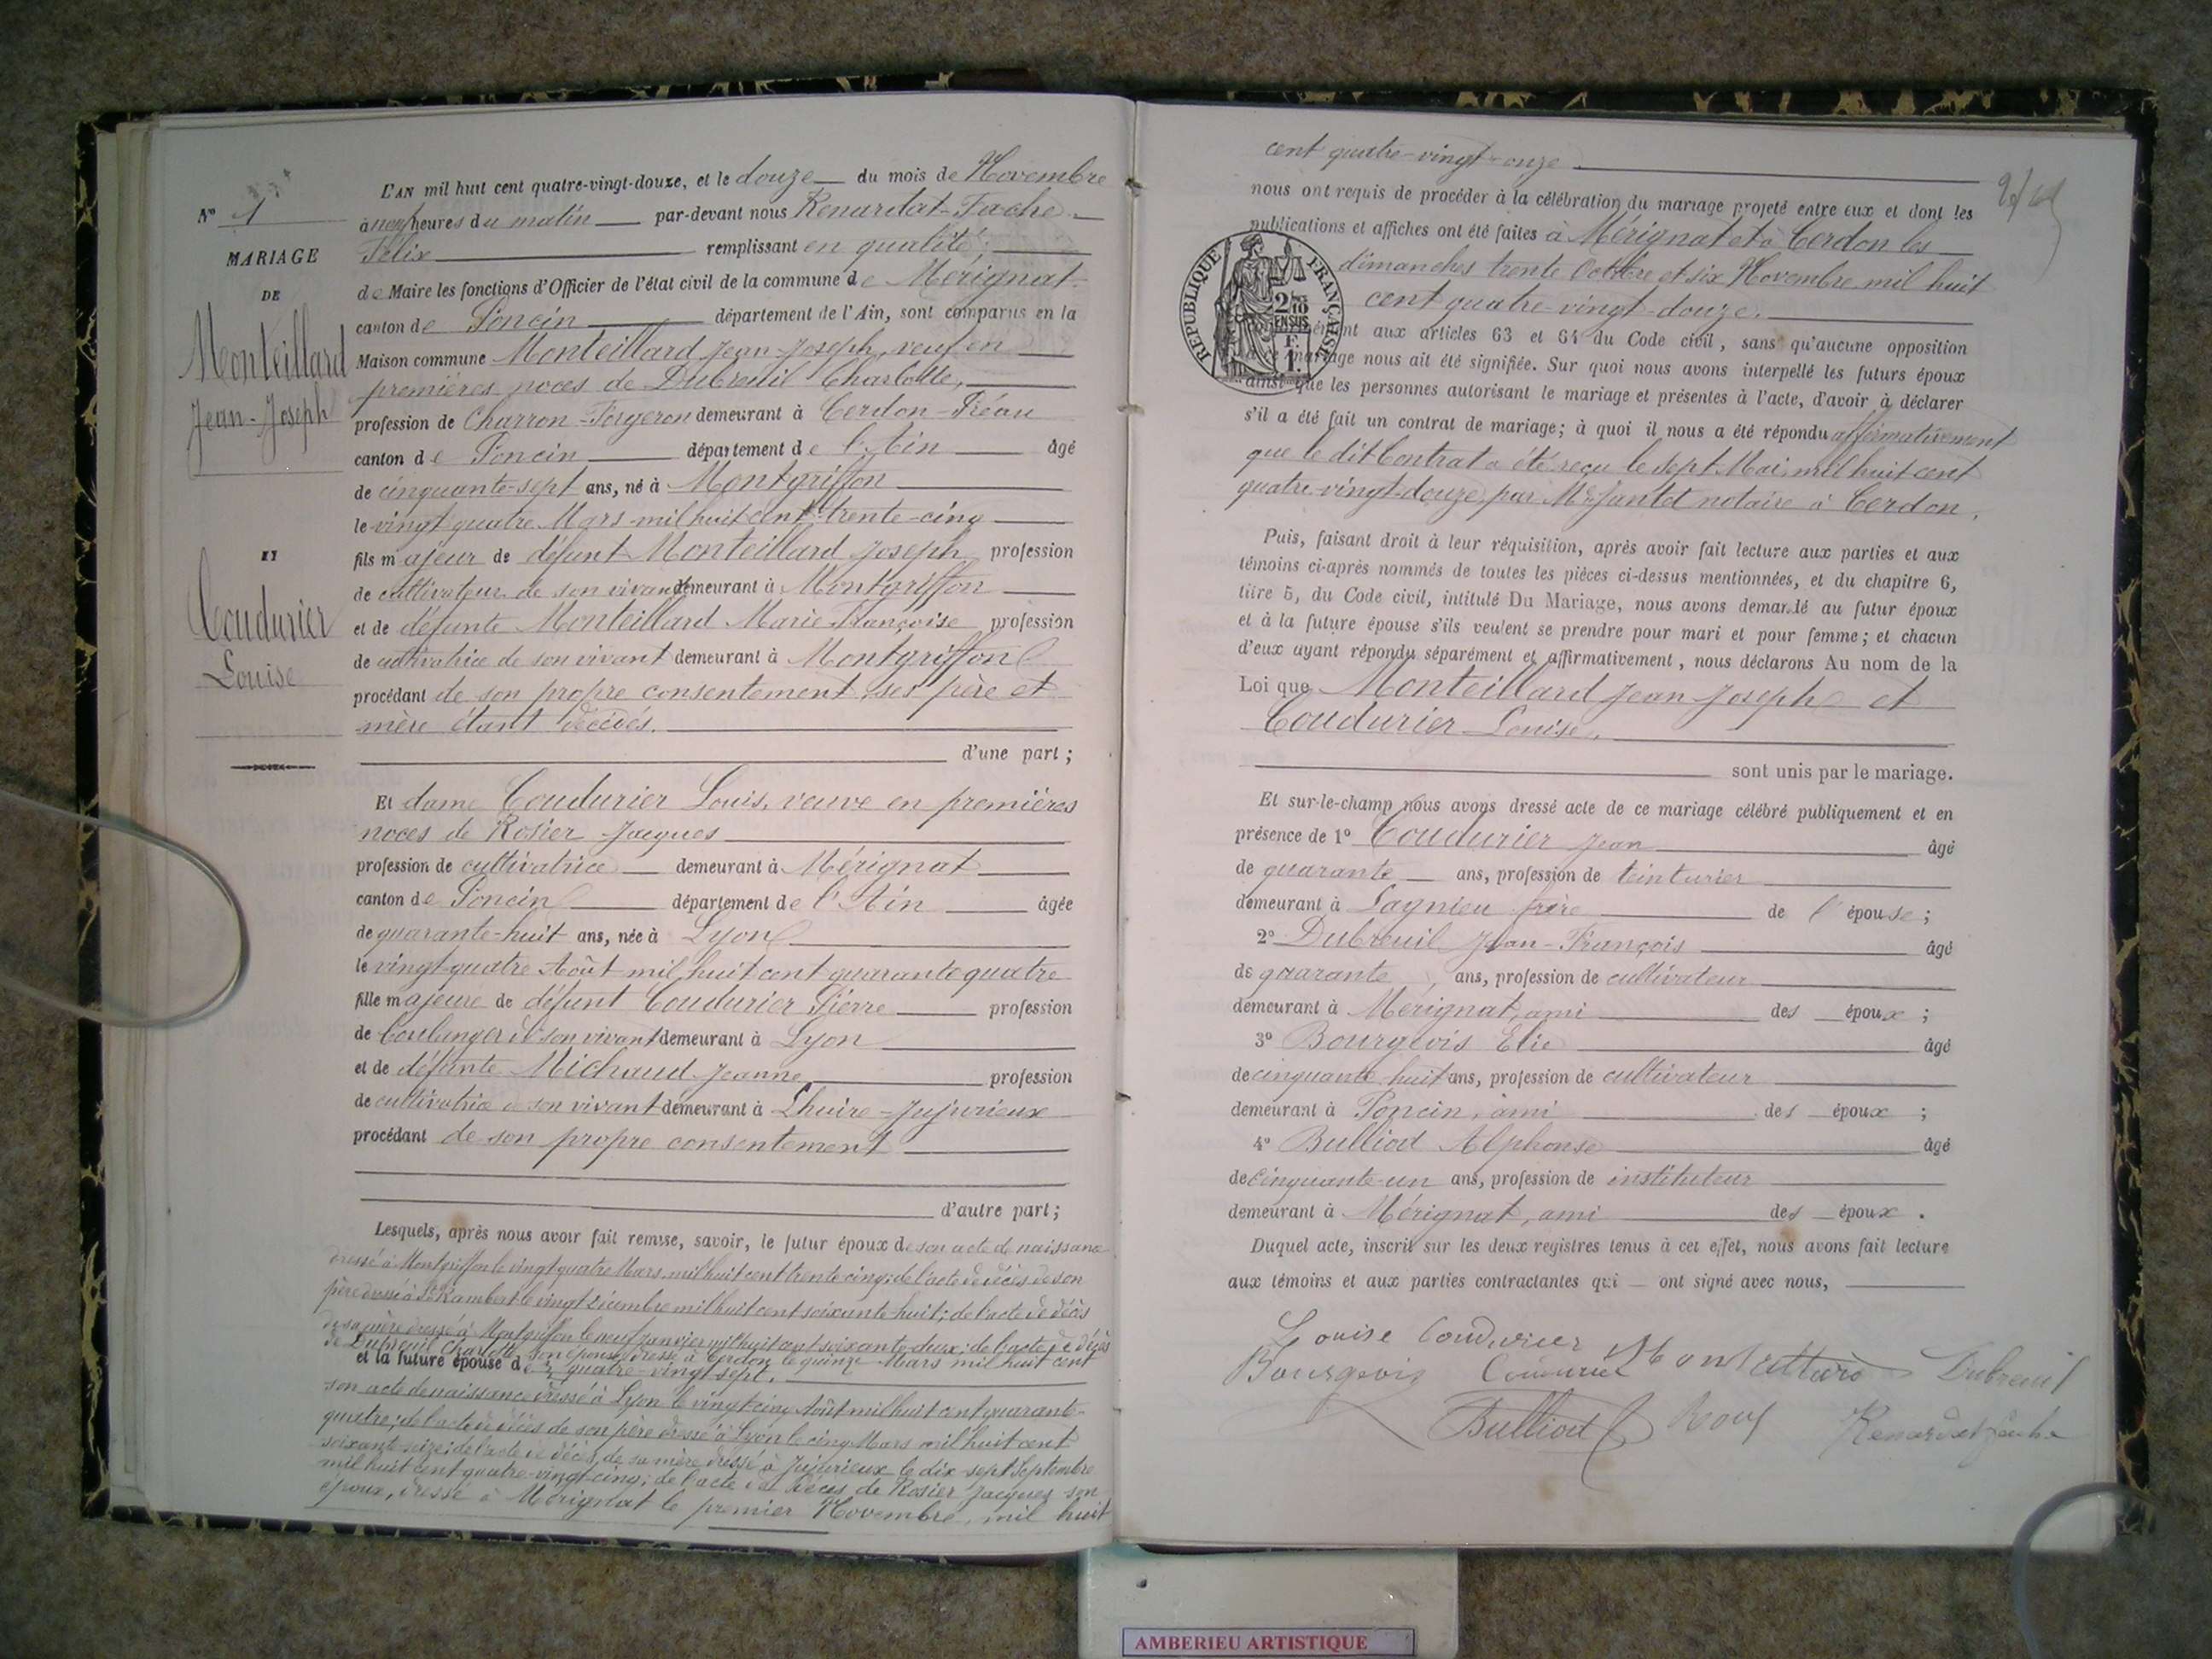 N° 1
MARIAGE
DE
Monteillard
Jean-Joseph
ET
Coudurier
Louise
L'AN mil huit cent quatre-vingt-douze, et le douze du mois de Novembre
à neuf heures du matin par-devant nous Renardat-Fache
Félix remplissant en qualité;
de Maire les fonctions d'Officier de l'état civil de la commune de Mérignat
canton de Poncin département de l'Ain, sont comparus en la
Maison commune Monteillard Jean-Joseph, veuf en
premières noces de Dubreuil Charlotte,
profession de Charron-Forgeron demeurant à Cerdon-Préau
canton de Poncin département de l'Ain âgé
de cinquante-sept ans, né à Montgriffon
le vingt quatre Mars mil huit cent trente-cinq
fils majeur de défunt Monteillard Joseph profession
de cultivateur de son vivant demeurant à Montgriffon
et de défunte Monteillard Marie Françoise profession
de cultivatrice de son vivant demeurant à Montgriffon
procédant de son propre consentement, ses père et
mère étant décédés.
d'une part;
Et dame Coudurier Louis, veuve en premières
noces de Rosier Jacques
profession de cultivatrice demeurant à Mérignat
canton de Poncin département de l'Ain âgée
de quarante-huit ans, née à Lyon
le vingt-quatre Août mil huit cent quarante quatre
fille majeure de défunt Coudurier Pierre profession
de boulanger de son vivant demeurant à Lyon
et de défunte Michaud Jeanne profession
de cultivatrice de son vivant demeurant à Lhuire-Jujurieux
procédant de son propre consentement
d'autre part;
Lesquels, après nous avoir fait remise, savoir, le futur époux de son acte de naissance
dressé à Montgriffon le vingt quatre Mars mil huit cent trente cinq; de l'acte de décès de son
père dressé à St Rambert le vingt décembre mil huit cent soixante-huit; de l'acte de décès
de sa mère dressé à Montgriffon le neuf Janvier mil huit cent soixante-deux; de l'acte de décès
de Dubreuil Charlotte son épouse dressé à Cerdon le quinze Mars mil huit cent
et la future épouse de quatre-vingt-sept.
son acte de naissance dressé à Lyon le vingt-cinq Août mil huit cent quarante-
quatre; de l'acte de décès de son père dressé à Lyon le cinq Mars mil huit cent
soixante-seize; de l'acte de décès de sa mère dressé à Jujurieux le dix-sept Septembre
mil huit cent quatre-vingt-cinq; de l'acte de décès de Rosier Jacques son
époux, dressé à Mérignat le premier Novembre, mil huit
cent quatre-vingt-onze
nous ont requis de procéder à la célébration du mariage projeté entre eux et dont les
publications et affiches ont été faites à Mérignat et à Cerdon les
dimanches trente Octobre et six Novembre mil huit
cent quatre-vingt-douze.
RÉPUBLIQUE FRANÇAISE
2/10 EN SUS
1 F.
aux articles 63 et 64 du Code civil, sans qu'aucune opposition
mariage nous ait été signifiée. Sur quoi nous avons interpellé les futurs époux
ainsi que les personnes autorisant le mariage et présentes à l'acte, d'avoir à déclarer
s'il a été fait un contrat de mariage; à quoi il nous a été répondu affirmativement
que le dit Contrat a été reçu le sept Mai mil huit cent
quatre-vingt-douze, par Me Jantet notaire à Cerdon.
Puis, faisant droit à leur réquisition, après avoir fait lecture aux parties et aux
témoins ci-après nommés de toutes les pièces ci-dessus mentionnées, et du chapitre 6,
titre 5, du Code civil, intitulé Du Mariage, nous avons demandé au futur époux
et à la future épouse s'ils veulent se prendre pour mari et pour femme; et chacun
d'eux ayant répondu séparément et affirmativement, nous déclarons Au nom de la
Loi que Monteillard Jean-Joseph et
Coudurier Louise,
sont unis par le mariage.
Et sur-le-champ nous avons dressé acte de ce mariage célébré publiquement et en
présence de 1° Coudurier Jean âgé
de quarante ans, profession de teinturier
demeurant à Lagnieu frère de l'épouse;
2° Dubreuil Jean-François âgé
de quarante ans, profession de cultivateur
demeurant à Mérignat, ami des époux;
3° Bourgeois Elie âgé
de cinquante huit ans, profession de cultivateur
demeurant à Poncin, ami des époux;
4° Bulliod Alphonse âgé
de cinquante-un ans, profession de instituteur
demeurant à Mérignat, ami des époux.
Duquel acte, inscrit sur les deux registres tenus à cet effet, nous avons fait lecture
aux témoins et aux parties contractantes qui ont signé avec nous,
Louise Coudurier
Bourgeois Coudurier Dubreuil
Bulliod Renardat Fache
AMBERIEU ARTISTIQUE